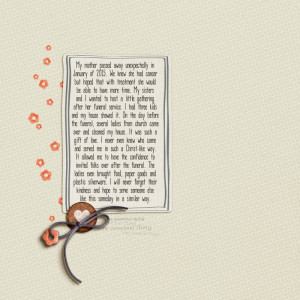 My mother passed away unexpectedly in
January of 2015. We knew she had cancer
but hoped that with treatment she would
be able to have more time. My sisters
and I wanted to host a little gathering
after her funeral service. I had three kids
and my house showed it. On the day before
the funeral, several ladies from church came
over and cleaned my house. It was such a
gift of love. I never even knew who came
and served me in such a Christ-like way.
It allowed me to have the confidence to
invited folks over after the funeral. The
ladies even brought food, paper goods and
plastic silverware. I will never forget their
kindness and hope to serve someone else
like this someday in a similar way.